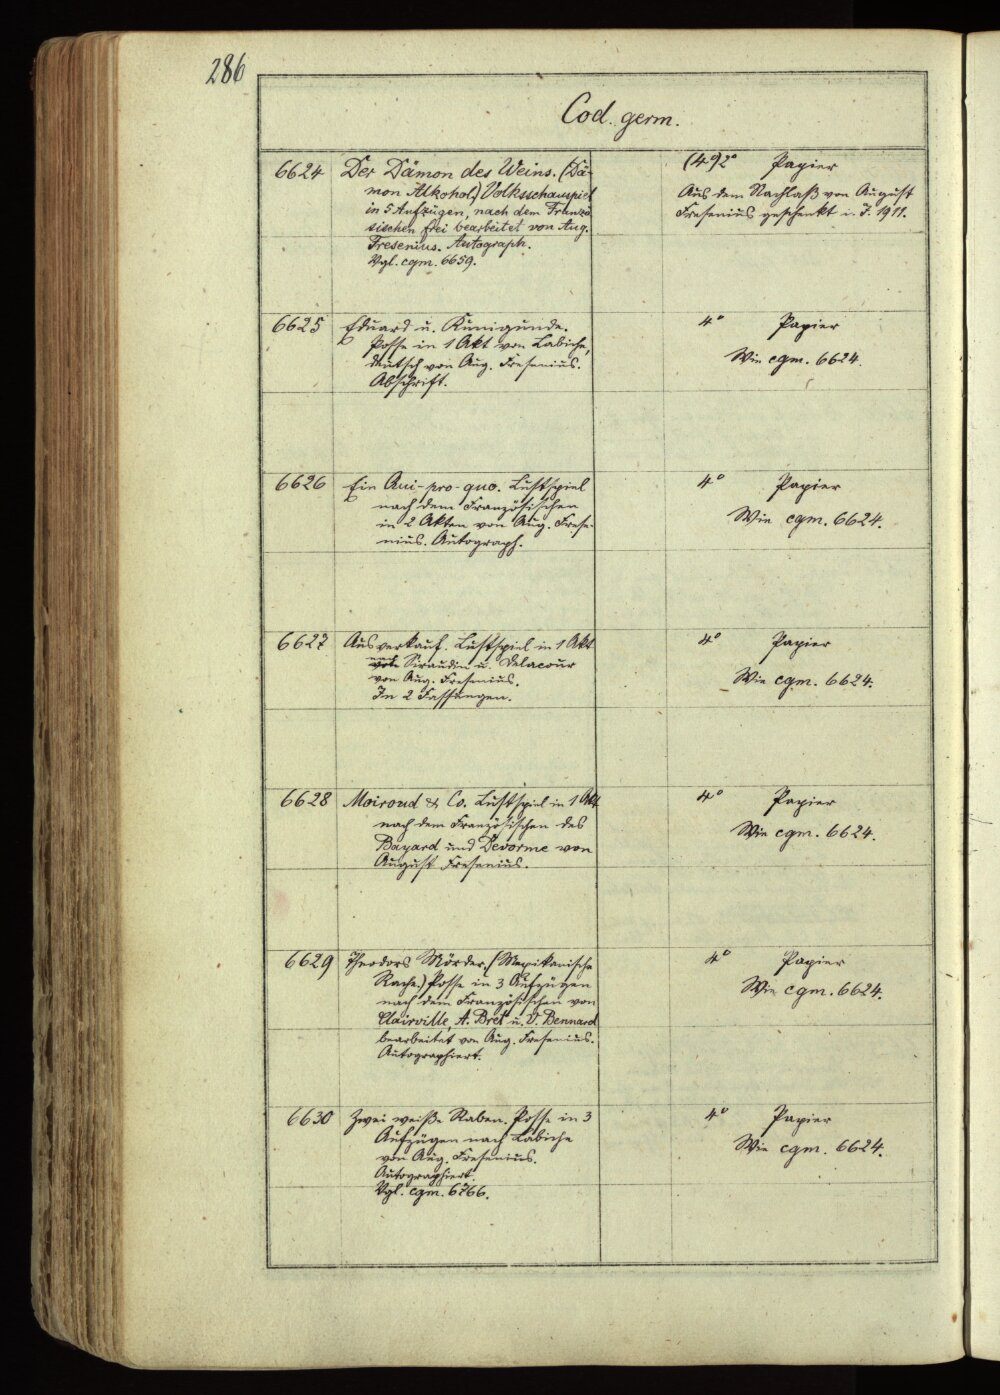 286
Cod. germ.
6624 Der Dämon des Weins. (Dä-
mon Alkohol.) Volksschauspiel
in 5 Aufzügen, nach dem Franzö-
sischen frei bearbeitet von Aug.
Fresenius. Autograph.
Vgl. cgm. 6659.
(4°) 2° Papier
Aus dem Nachlaß von August
Fresenius geschenkt i. J. 1911.
6625 Eduard u. Kunigunde.
Posse in 1 Akt von Labiche,
deutsch von Aug. Fresenius.
Abschrift.
4° Papier
Wie cgm. 6624.
6626 Ein Qui-pro-quo. Lustspiel
nach dem Französischen
in 2 Akten von Aug. Frese-
nius. Autograph.
4° Papier
Wie cgm. 6624.
6627 Ausverkauf. Lustspiel in 1 Akt
nach Siraudin u. Delacour
von Aug. Fresenius.
In 2 Fassungen.
4° Papier
Wie cgm. 6624.
6628 Moiroud & Co. Lustspiel in 1 Akt
nach dem Französischen des
Bayard und Devorme von
August Fresenius.
4° Papier
Wie cgm. 6624.
6629 Theodors Mörder. (Mexikanische
Rache.) Posse in 3 Aufzügen
nach dem Französischen von
Clairville, A. Bret u. V. Bennard
bearbeitet von Aug. Fresenius.
Autographiert.
4° Papier
Wie cgm. 6624.
6630 Zwei weiße Raben. Posse in 3
Aufzügen nach Labiche
von Aug. Fresenius.
Autographiert.
Vgl. cgm. 6766.
4° Papier
Wie cgm. 6624.